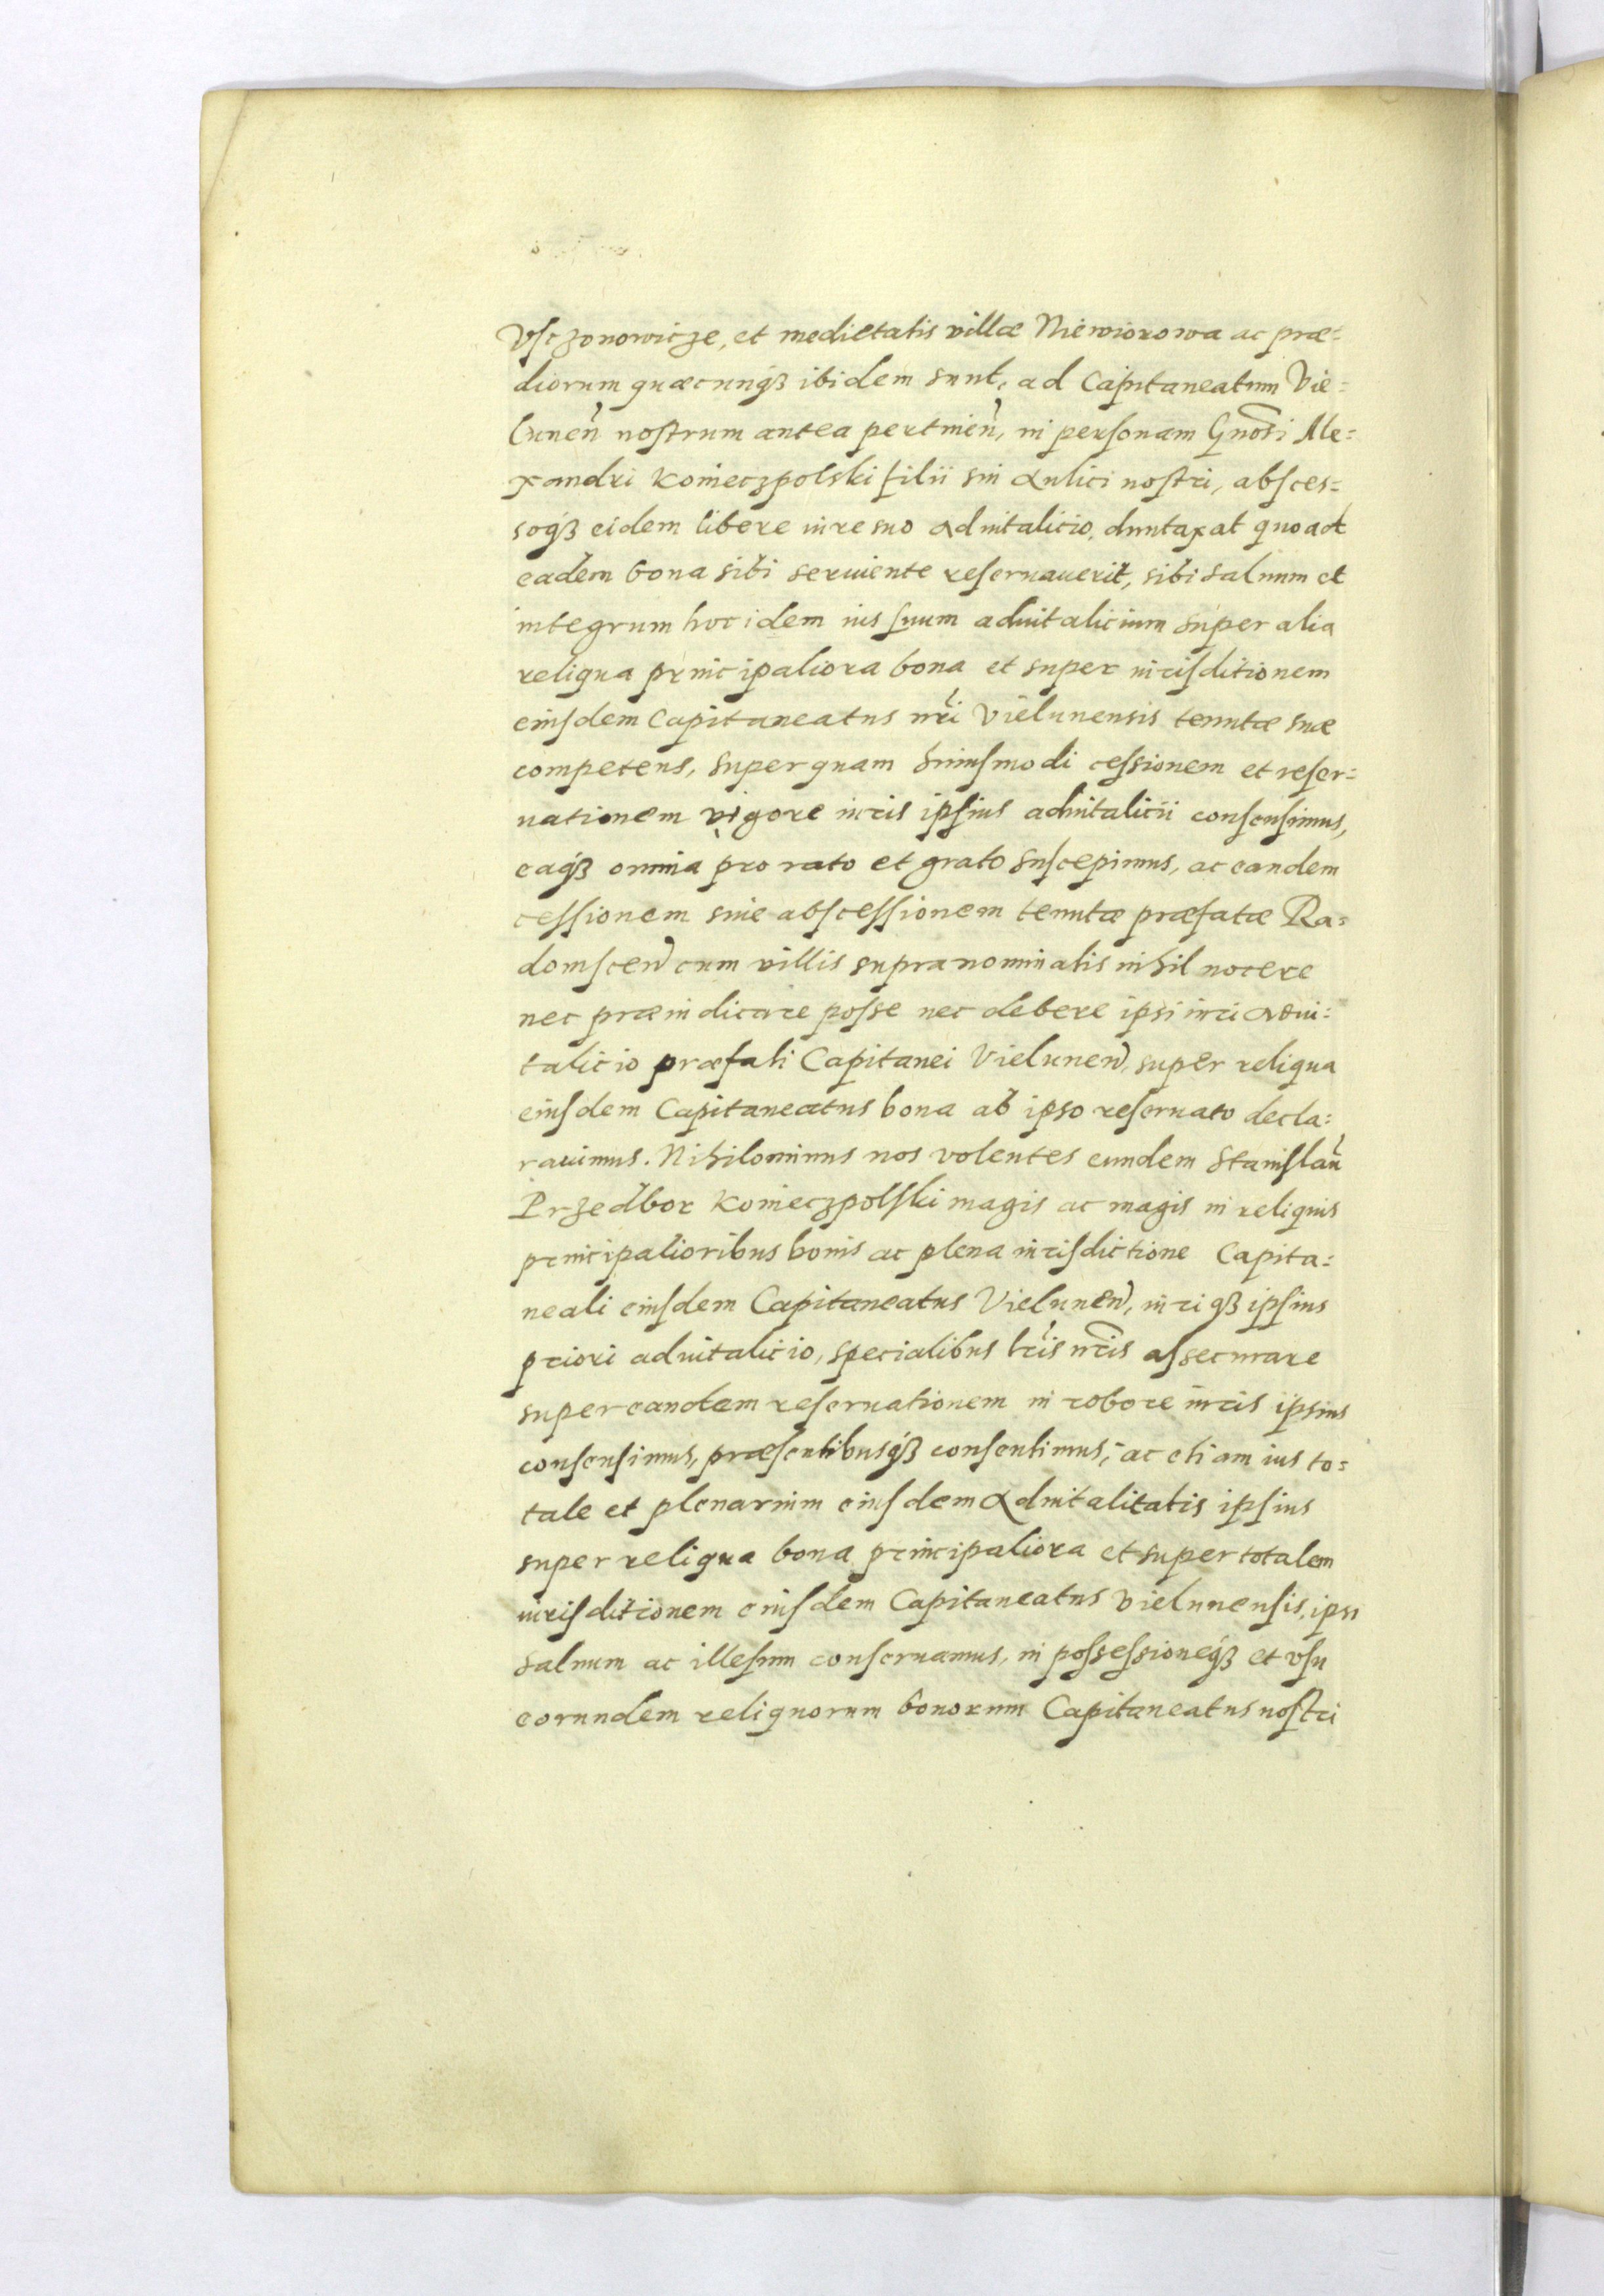 Vsczonowicze, et medietatis villæ Niewiorowa ac præ=
diorum quæcunqꝫ ibidem sunt, ad Capitaneatum Vie=
lunen̄ nostrum antea pertinen̄, in personam Gn̄osi Ale=
xandri Konieczpolski filii sui Aulici nostri, absces=
soqꝫ eidem libere iure suo aduitalicio, duntaxat quoad
eadem bona sibi seruiente reseruauerit, sibi saluum et
integrum hoc idem ius suum aduitalicium super alia
reliqua principaliora bona et super iurisditionem
eiusdem Capitaneatus nr̄i Vielunensis tenutæ suæ
competens, super quam huiusmodi cessionem et reser=
uationem vigore iuris ipsius aduitalicii consensimus,
eaqꝫ omnia pro rato et grato suscepimus, ac eandem
cessionem siue abscessionem tenutæ præfatæ Ra=
domscen̄ cum villis supranominatis nihil nocere
nec præiudicare posse nec debere ipsi iuri adui=
talicio præfati Capitanei Vielunen̄, super reliqua
eiusdem Capitaneatus bona ab ipso reseruato decla=
rauimus. Nihilominus nos volentes eundem Stanislaū
Przedbor Konieczpolski magis ac magis in reliquis
principalioribus bonis ac plena iurisdictione Capita=
neali eiusdem Capitaneatus Vielunen̄, iuriqꝫ ipsius
priori aduitalicio, specialibus lr̄is nr̄is assecurare
super eandem reseruationem in robore iuris ipsius
consensimus, præsentibusqꝫ consentimus, ac etiam ius to=
tale et plenarium eiusdem Aduitalitatis ipsius
super reliqua bona principaliora et super totalem
iurisditionem eiusdem Capitaneatus Vielunensis, ipsi
saluum ac illesum conseruamus, in possessioneqꝫ et vsu
eorundem reliquorum bonorum Capitaneatus nostri